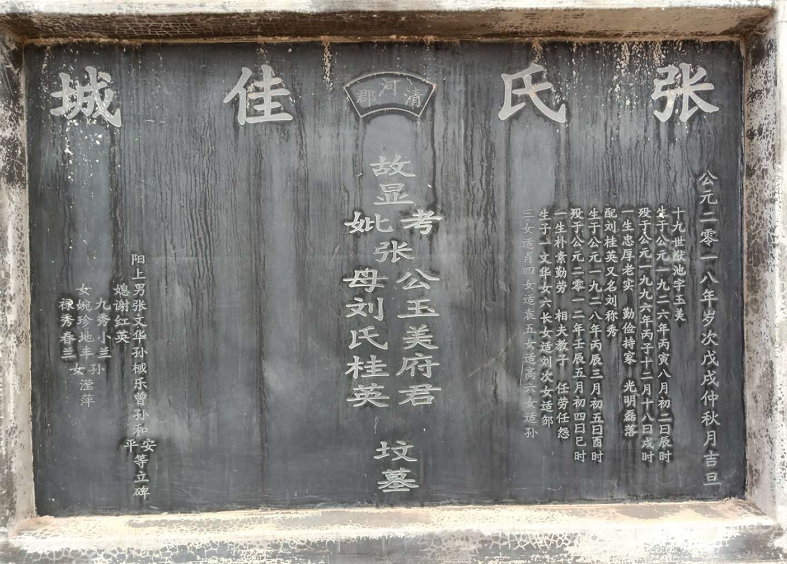 张氏佳城
清河郡
公元二零一八年岁次戊戌仲秋月吉旦
十九世猷池字玉美
生于公元一九二六年丙寅八月初二日辰时
殁于公元一九九六年丙子十二月十八日戌时
一生忠厚老实 勤俭持家 光明磊落
配刘桂英又名刘称秀
生于公元一九二八年戊辰三月初五日酉时
殁于公元二零一二年壬辰五月初四日巳时
一生朴素勤劳 相夫教子 任劳任怨
生子一文华女六长女适刘次女适邹
三女适肖四女适袁五女适高六女适孙
故显
考张公玉美府君
妣张母刘氏桂英
坟墓
阳上男张文华孙械乐曾孙和安平等立碑
媳谢红英
九秀小兰孙
女婉珍地丰女滢萍
禄秀春兰